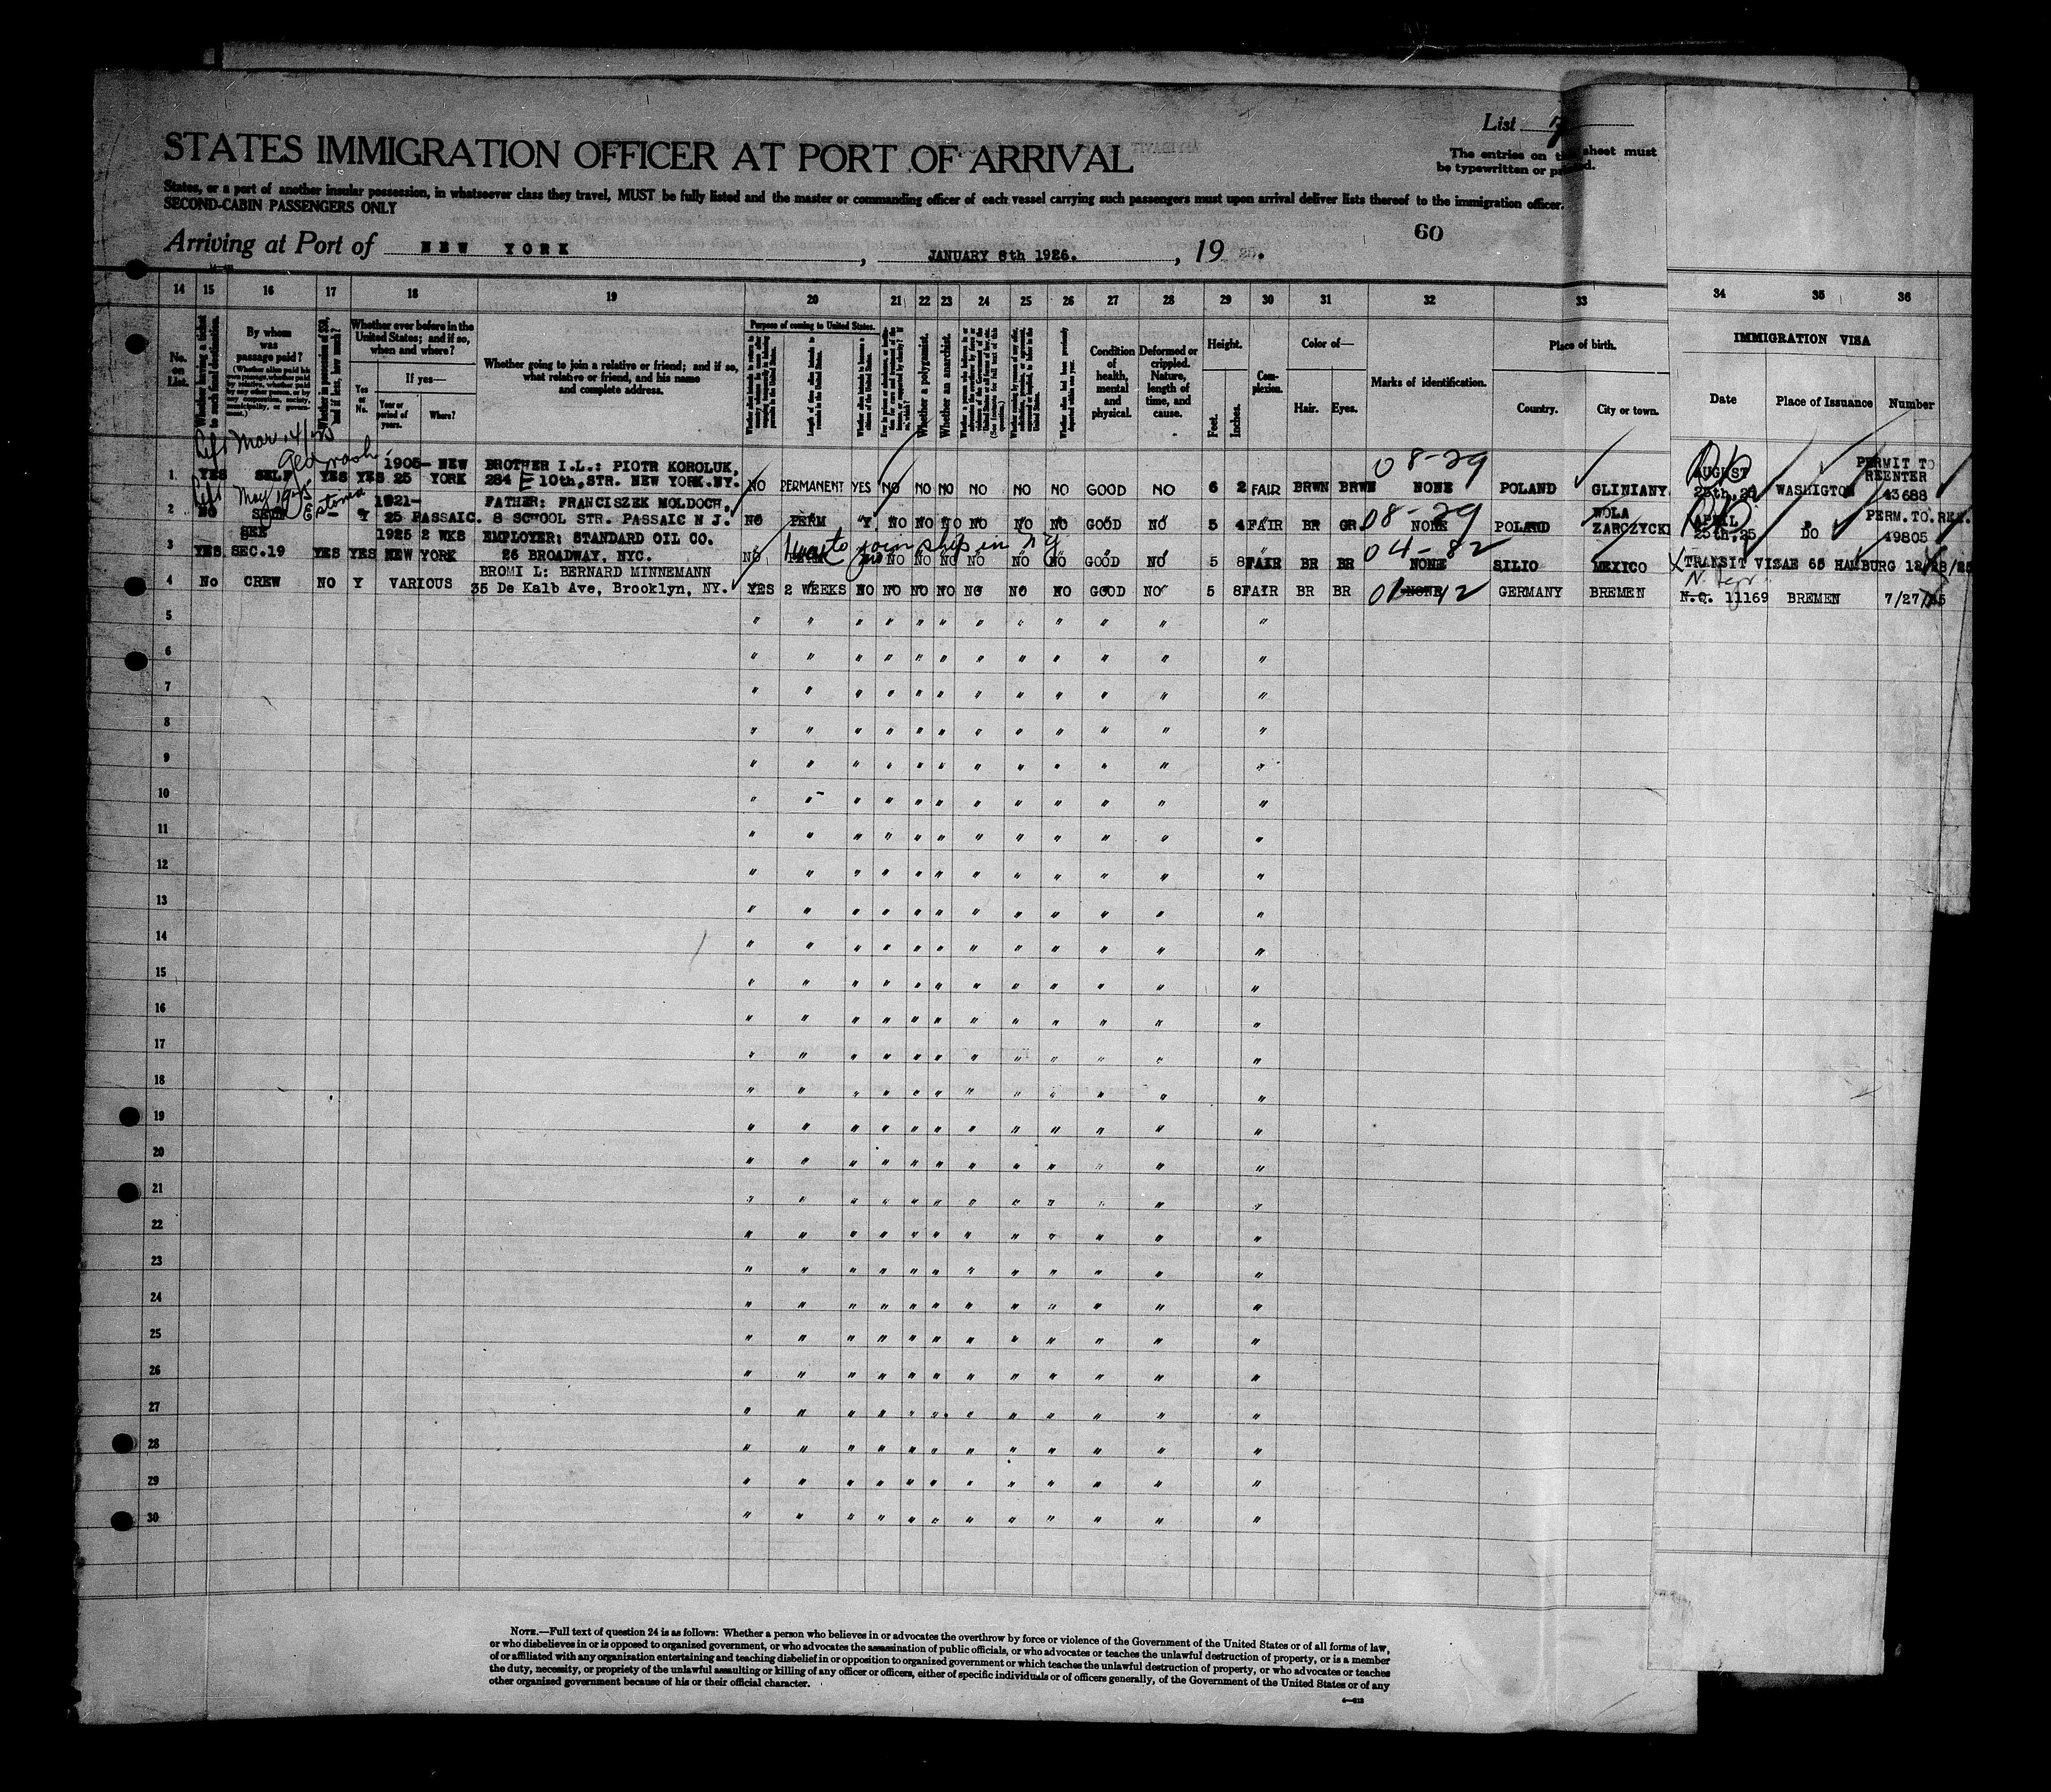 List 7
STATES IMMIGRATION OFFICER AT PORT OF ARRIVAL
The entries on this sheet must
be typewritten or printed.
States, or a port of another insular possession, in whatsoever class they travel, MUST be fully listed and the master or commanding officer of each vessel carrying such passengers must upon arrival deliver lists thereof to the immigration officer.
SECOND-CABIN PASSENGERS ONLY
60
Arriving at Port of NEW YORK, JANUARY 8th 1926., 19
14 15 16 17 18 19 20 21 22 23 24 25 26 27 28 29 30 31 32 33 34 35 36
No. on List.
Whether having a ticket to such final destination.
By whom was passage paid?
Whether in possession of $50, and if less, how much?
Whether ever before in the United States; and if so, when and where?
Yes or No.
If yes—
Year or period of years.
Where?
Whether going to join a relative or friend; and if so, what relative or friend, and his name and complete address.
Purpose of coming to United States.
Length of time alien intends to remain in the United States.
Whether a polygamist.
Whether an anarchist.
Condition of health, mental and physical.
Deformed or crippled. Nature, length of time, and cause.
Height.
Feet.
Inches.
Complexion.
Color of—
Hair.
Eyes.
Marks of identification.
Place of birth.
Country.
City or town.
IMMIGRATION VISA
Date
Place of Issuance
Number
Left Mar 14/25
08-29
1905- NEW BROTHER I.L.: PIOTR KOROLUK, AUGUST PERMIT TO
1 YES SELF YES YES 25 YORK 284 E 10th,STR. NEW YORK.NY. NO PERMANENT YES NO NO NO NO NO NO GOOD NO 6 2 FAIR BRWN BRWN NONE POLAND GLINIANY 25th,25 WASHIGTON REENTER 43688
Left May 1925 Estonia
08-29
1921- FATHER: FRANCISZEK MOLDOCH, WOLA APRIL PERM.TO.REE.
2 NO SELF - Y 25 PASSAIC. 8 SCHOOL STR. PASSAIC N J. NO PERM Y NO NO NO NO NO NO GOOD NO 5 4 FAIR BR GR NONE POLAND ZARCZYCKI 25th,25 DO 49805
to join ship in NY
04-82
SEE 1925 2 WKS EMPLOYER: STANDARD OIL CO.
3 YES SEC.19 YES YES NEW YORK 26 BROADWAY, NYC. NO NO NO NO NO NO NO NO GOOD NO 5 8 FAIR BR BR NONE SILIO MEXICO TRANSIT VISAE 65 HAMBURG 12/28/25
01-42
BROMI L: BERNARD MINNEMANN
4 No CREW NO Y VARIOUS 35 De Kalb Ave, Brooklyn, NY. YES 2 WEEKS NO NO NO NO NO NO NO GOOD NO 5 8 FAIR BR BR NONE GERMANY BREMEN N.Q. 11169 BREMEN 7/27/25
5
6
7
8
9
10
11
12
13
14
15
16
17
18
19
20
21
22
23
24
25
26
27
28
29
30
NOTE.—Full text of question 24 is as follows: Whether a person who believes in or advocates the overthrow by force or violence of the Government of the United States or of all forms of law,
or who disbelieves in or is opposed to organized government, or who advocates the assassination of public officials, or who advocates or teaches the unlawful destruction of property, or is a member
of or affiliated with any organization entertaining and teaching disbelief in or opposition to organized government or which teaches the unlawful destruction of property, or who advocates or teaches
the duty, necessity, or propriety of the unlawful assaulting or killing of any officer or officers, either of specific individuals or of officers generally, of the Government of the United States or of any
other organized government because of his or their official character.